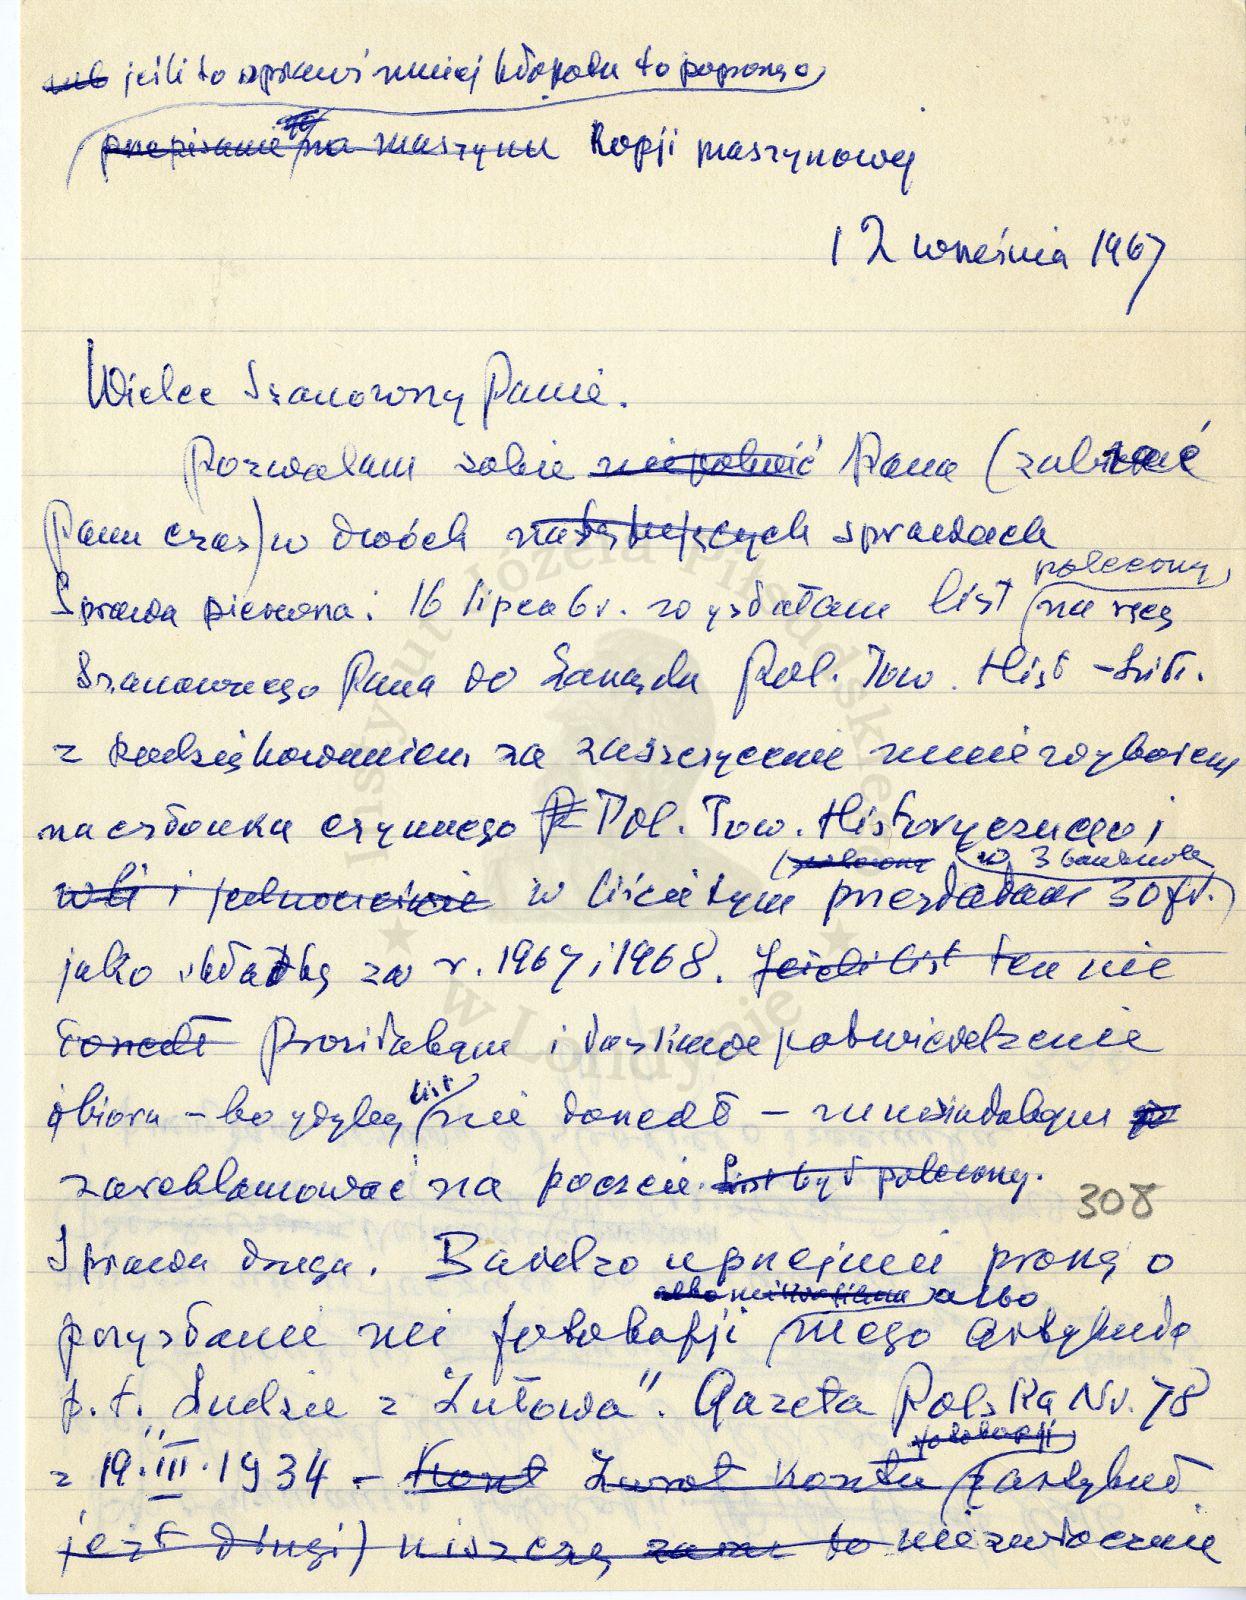 jeśli to sprawi mniej kłopotu to poproszę o
przepisanie na maszynu kopji maszynowej
12 września 1967
Wielce Szanowny Panie.
Pozwalam sobie niepokoić Pana (zabierać
Panu czas) w dwóch następujących sprawach
polecony
Sprawa pierwsza: 16 lipca br. wysłałam list na ręce
Szanownego Pana do Zarządu Pol. Tow. Hist-Lit.
z podziękowaniem za zaszczycenie mnie wyborem
na członka czynnego P Pol. Tow. Historycznego i
polecony w 3 banknotach
i jednocześnie w liście tym przesłałam 30 fr.
jako składkę za r. 1967 i 1968. Jeżeli list ten nie
doszedł Prosiłabym i łaskawe potwierdzenie
list
obioru – bo gdyby nie doszedł – musiałabym
zareklamować na poczcie. List był polecony.
308
Sprawa druga. Bardzo uprzejmie proszę o
albo mikrofilmu albo
przysłanie mi fotokopji mego artykułu
p.t. „Ludzie z Zułowa". Gazeta Polska Nr. 78
fotokopji
z 19.III.1934 – Koszt Zwrot kosztu (artykuł
jest długi) uiszczę to niezwłocznie
Instytut Józefa Piłsudskiego
w Londynie